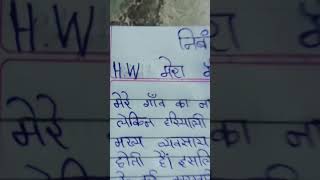 निबं
H.W मेरा
मेरे गाँव का ना
लेकिन हरियाली
मुख्य व्यवसाय
होती हैं। इसलि